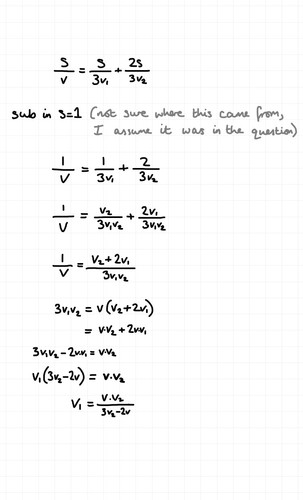 S/V = S/3v₁ + 2S/3v₂
sub in S=1 (not sure where this came from,
I assume it was in the question)
1/V = 1/3v₁ + 2/3v₂
1/V = v₂/3v₁v₂ + 2v₁/3v₁v₂
1/V = v₂+2v₁/3v₁v₂
3v₁v₂ = v(v₂+2v₁)
= v·v₂ + 2v·v₁
3v₁v₂ - 2v·v₁ = v·v₂
v₁(3v₂-2v) = v·v₂
v₁ = v·v₂/3v₂-2v